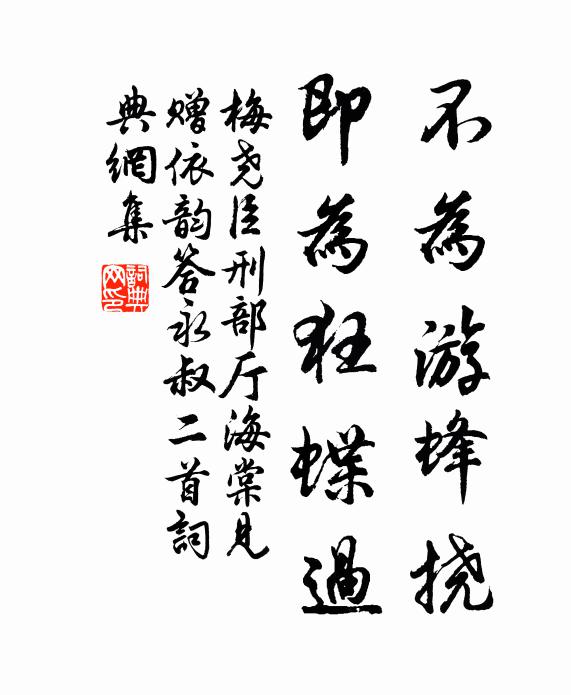 不為游蜂撓
即為狂蝶過
梅尧臣刑部厅海棠見
赠依韵答永叔二首詞
典網集
詞典网印